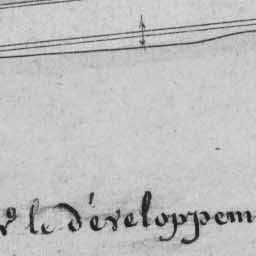 le développem